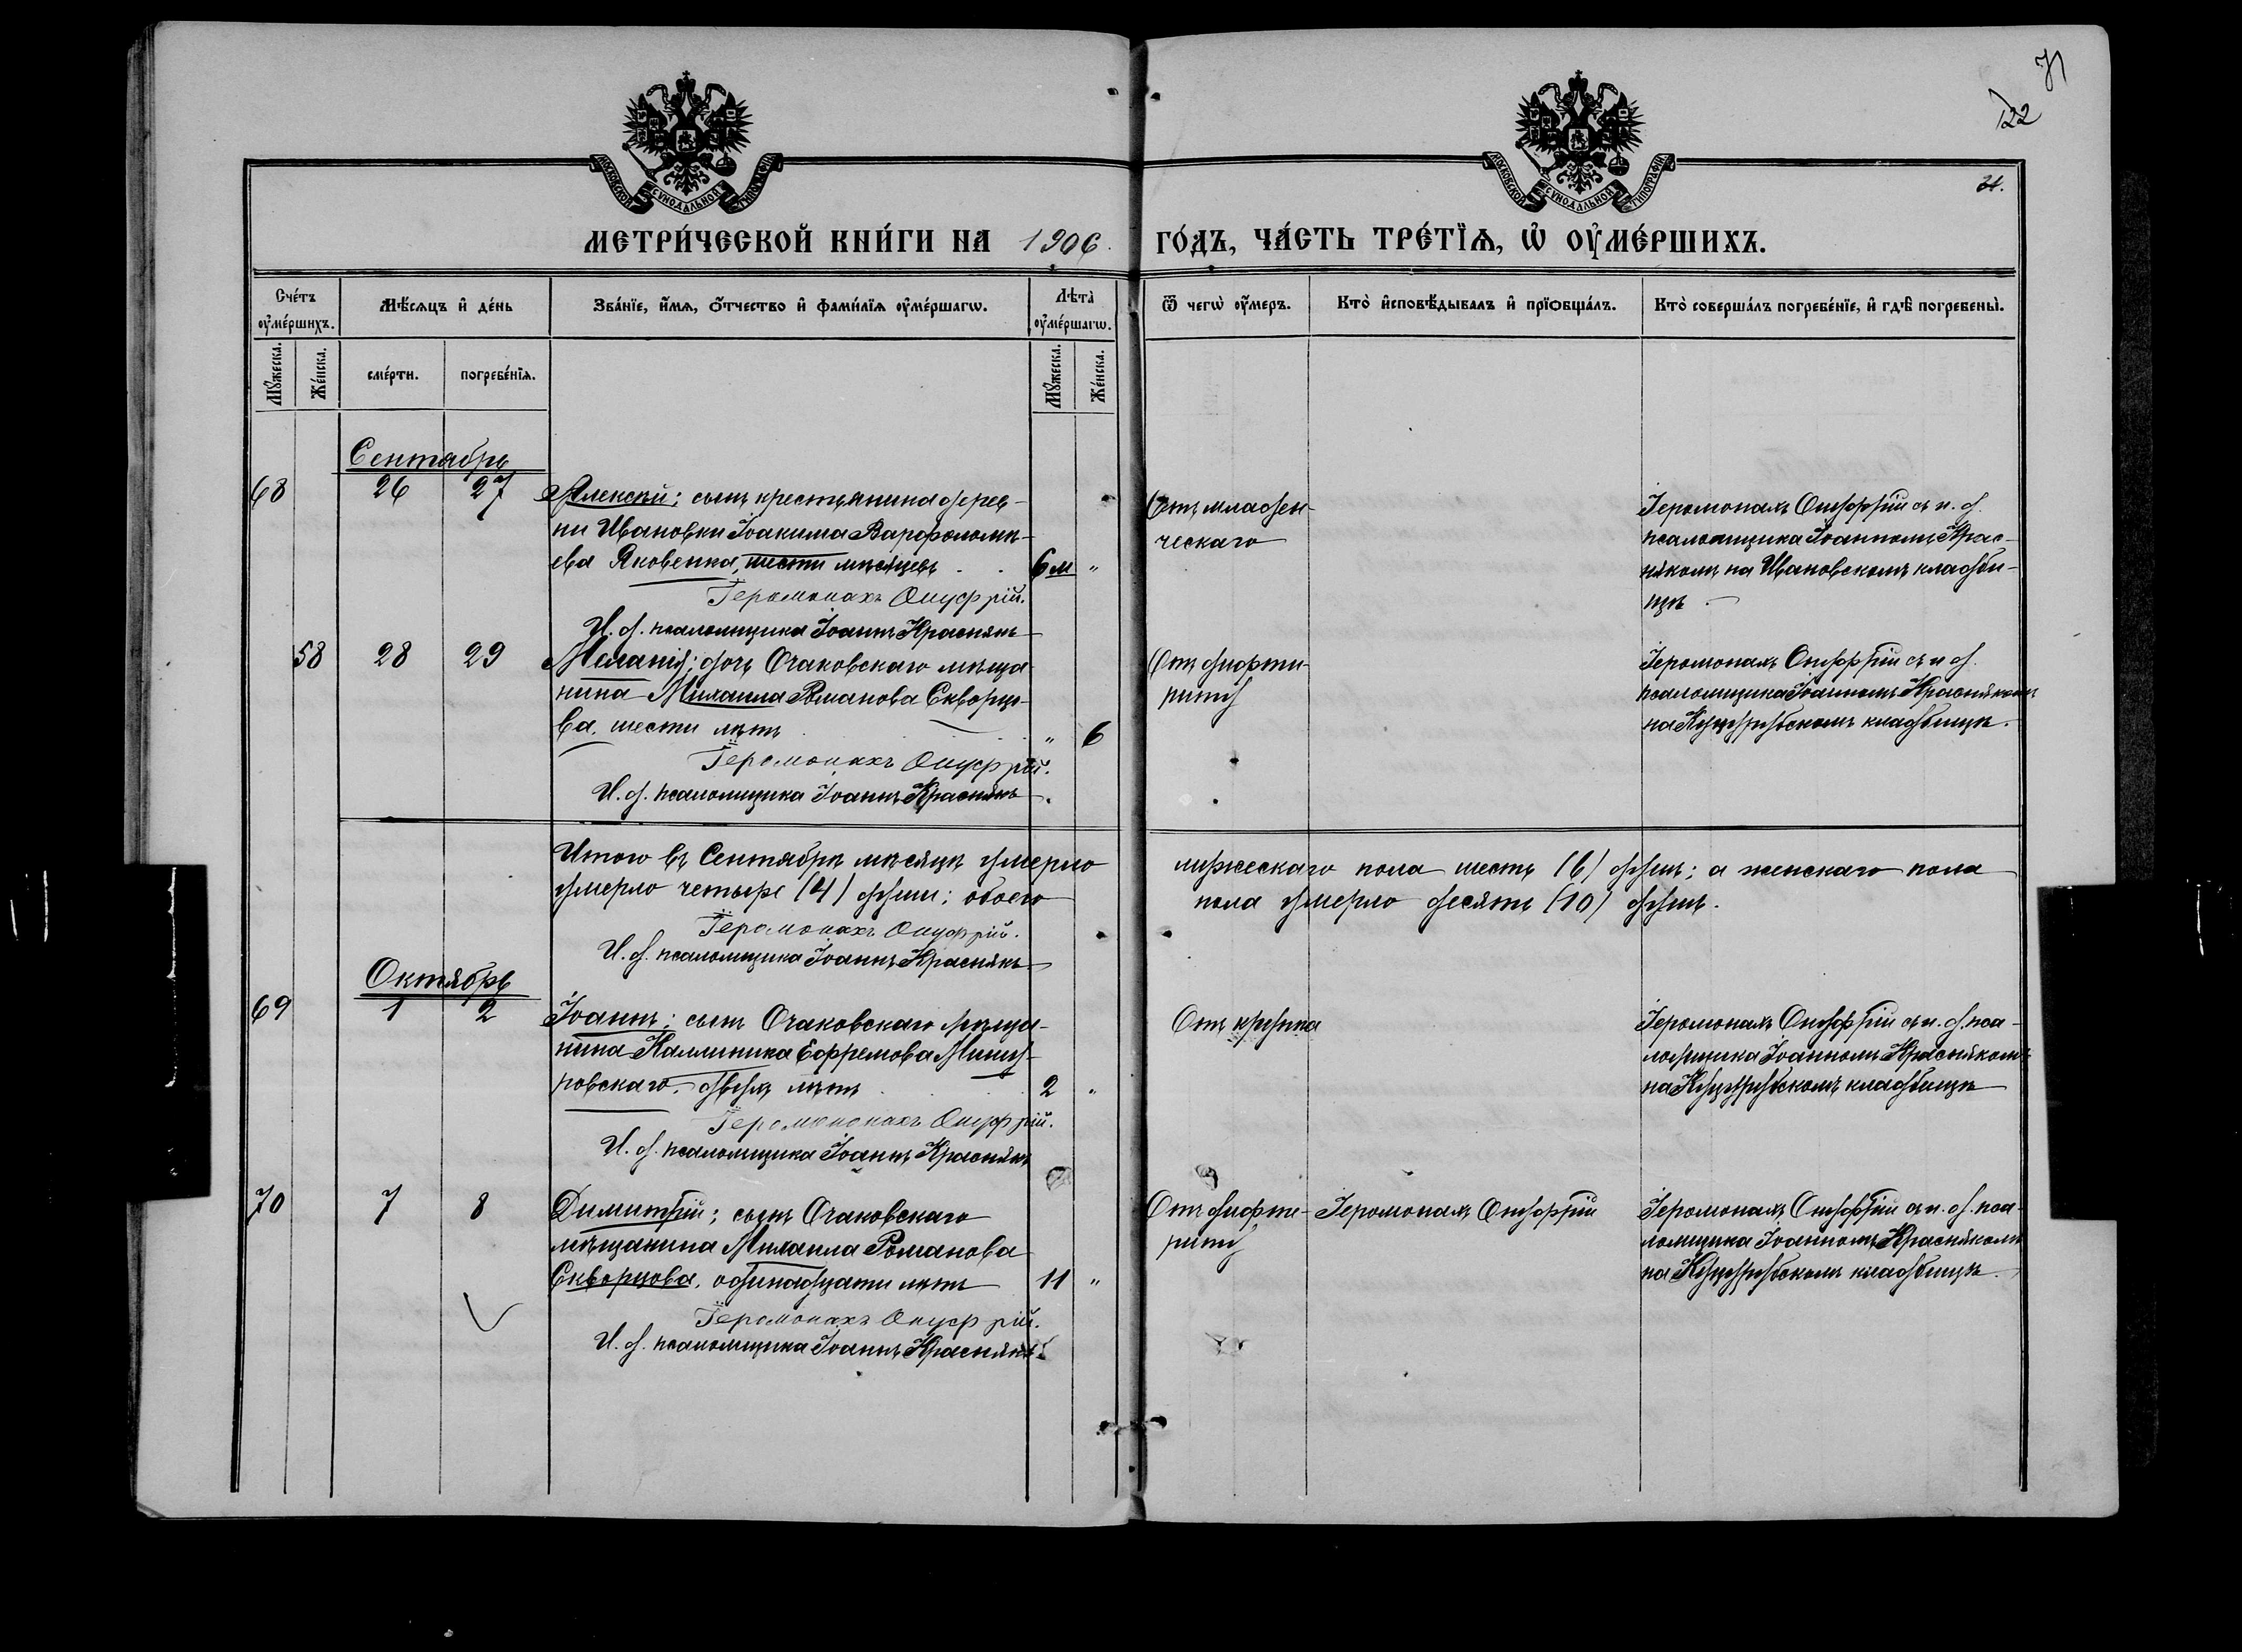 71
122
21.
МОСКОВСКОЙ СѴНОДАЛЬНОЙ ТИПОГРАФІИ
МОСКОВСКОЙ СѴНОДАЛЬНОЙ ТИПОГРАФІИ
МЕТРИ́ЧЕСКОЙ КНИ́ГИ НА 1906. ГО́ДЪ, ЧА́СТЬ ТРЕ́ТЇѦ, Ѡ҆ ОУ҆МЕ́РШИХЪ.
Сче́тъ оу҆ме́ршихъ.
Мѣ́сяцъ и҆ де́нь
Зва́нїе, и҆́мѧ, о҆́тчество и҆ фами́лїѧ оу҆ме́ршагѡ.
Лѣ̀та оу҆ме́ршагѡ.
Ѿ чегѡ̀ оу҆́меръ.
Кто̀ и҆сповѣ́дывалъ и҆ прїѻбща́лъ.
Кто̀ соверша́лъ погребе́нїе, и҆ гдѣ̀ погребены̀.
Мꙋ́жеска.
Же́нска.
сме́рти.
погребе́нїѧ.
Мꙋ́жеска.
Же́нска.
Сентябрь
68 26 27 Алексѣй; сынъ крестьянина дерев-
ни Ивановки Іоакима Варфоломѣ-
ева Яковенка, шести мѣсяцевъ . . 6 м "
Іеромонахъ Онуфрій.
И. д. псаломщика Іоаннъ Краснякъ
Отъ младен-
ческаго
Іеромонахъ Онуфрій съ и. д.
псаломщика Іоанномъ Крас-
някомъ на Ивановскомъ кладби-
щѣ
58 28 29 Меланія; дочь Очаковскаго мѣща-
нина Михаила Романова Скворцо-
ва, шести лѣтъ . . " 6
Іеромонахъ Онуфрій.
И. д. псаломщика Іоаннъ Краснякъ.
Отъ дифте-
рита
Іеромонахъ Онуфрій съ и. д.
псаломщика Іоанномъ Краснякомъ
на Куцурубскомъ кладбищѣ.
Итого въ Сентябрѣ мѣсяцѣ умерло мужескаго пола шесть (6) душъ; а женскаго пола
умерло четыре (4) души; обоего пола умерло десять (10) душъ.
Іеромонахъ Онуфрій.
И. д. псаломщика Іоаннъ Краснякъ
Октябрь
69 1 2 Іоаннъ; сынъ Очаковскаго мѣща-
нина Каллиника Ефремова
ровскаго, двухъ лѣтъ . . 2 "
Іеромонахъ Онуфрій.
И. д. псаломщика Іоаннъ Краснякъ
Отъ крупа
Іеромонахъ Онуфрій съ и. д. пса-
ломщика Іоанномъ Краснякомъ
на Куцурубскомъ кладбищѣ
70 7 8 Димитрій; сынъ Очаковскаго
мѣщанина Михаила Романова
Скворцова, одинадцати лѣтъ 11 "
Іеромонахъ Онуфрій.
И. д. псаломщика Іоаннъ Краснякъ
Отъ дифте-
рита
Іеромонахъ Онуфрій
Іеромонахъ Онуфрій съ и. д. пса-
ломщика Іоанномъ Краснякомъ
на Куцурубскомъ кладбищѣ.